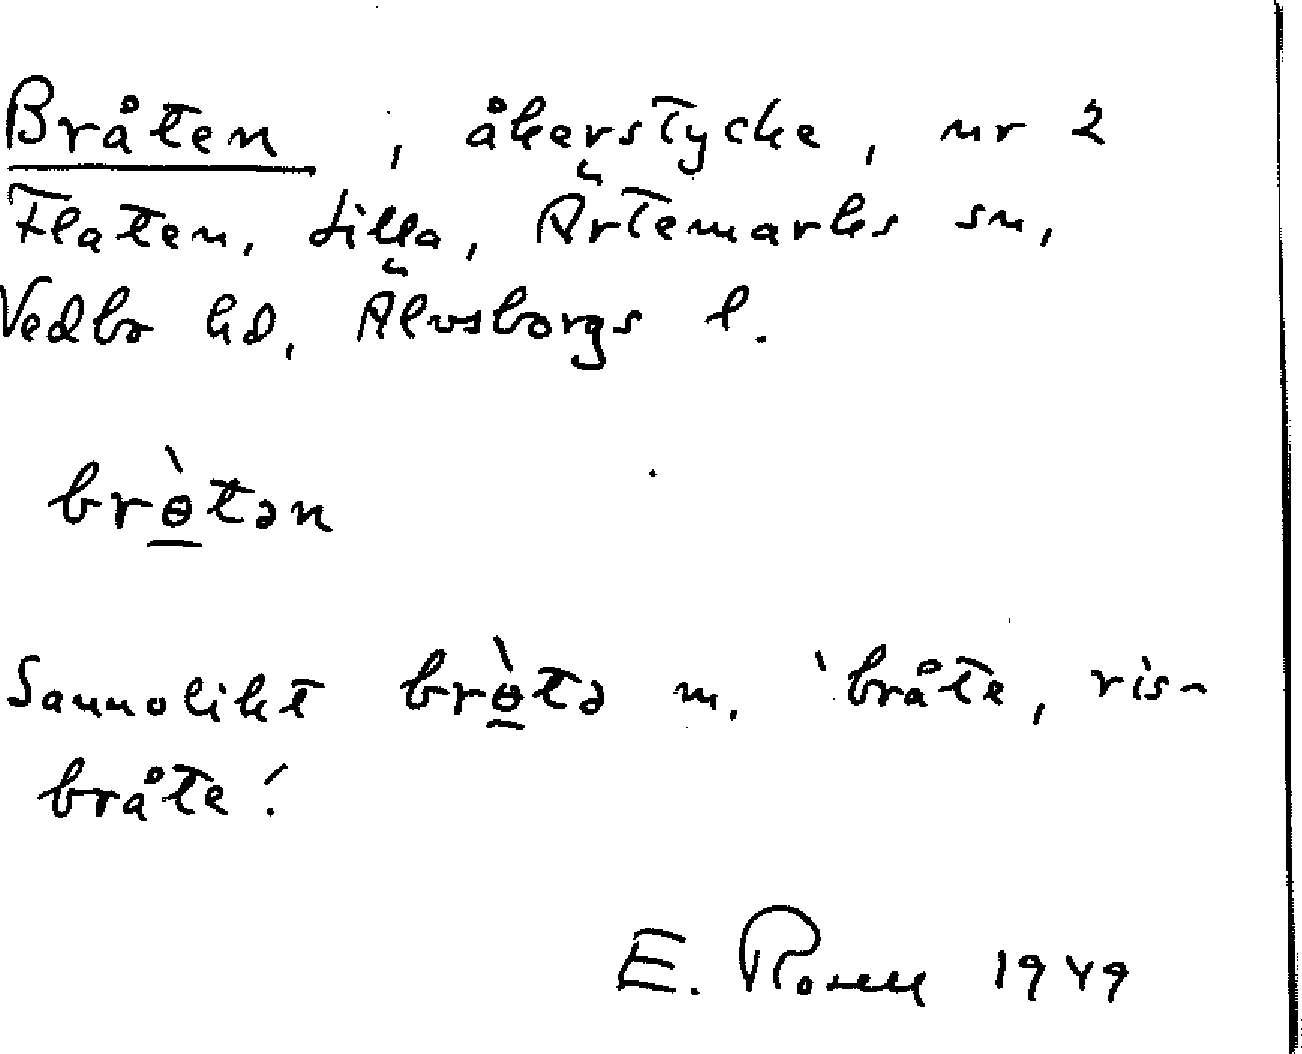 Bråten, åkerstycke, nr 2
Flaten, Lilla, Ärtemarks sn,
Vedbo hd, Älvsborgs l.
brɵ̱̀tən
Sannolikt brɵ̱̀tə m. 'bråte, ris-
bråte'.
E. Rosell 1949